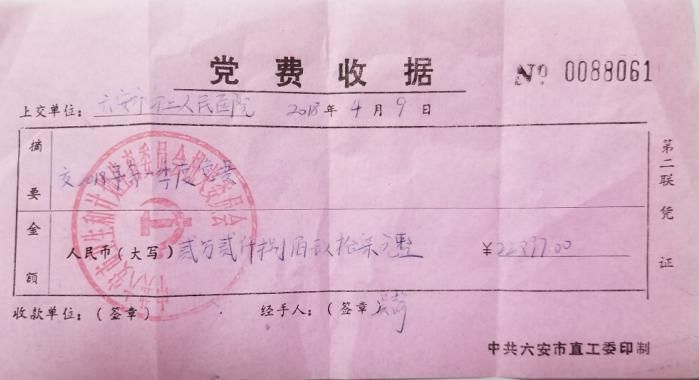 党费收据 № 0088061
上交单位：六安市第二人民医院 2018年4月9日
摘要 交2018年第一季度党费
金额 人民币（大写）贰万贰仟捌佰玖拾柒元整 ¥22897.00
收款单位：（签章） 经手人：（签章）
第二联凭证
中共六安市直工委印制